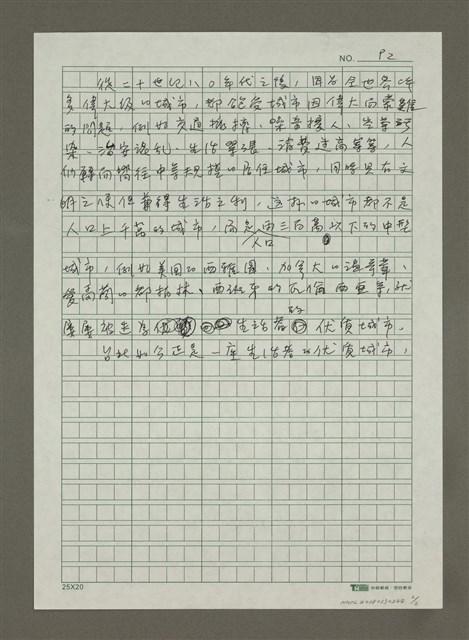 NO. P2
從二十世紀八〇年代之後,因為全世界許
多偉大級的城市,都飽受城市因偉大而索難
的問題,例如交通擁擠、噪音擾人、空氣污
染、治安混亂、生活緊張、消費過高等等,人
們轉向嚮往中等規模的居住城市,同時具有文
明之便但兼得生活之利,這相的城市都不是
人口上千萬的城市,而是人口兩三百萬以下的中型
城市,例如美國的西雅圖、加拿大的溫哥華、
愛爾蘭的都柏林、西班牙的瓦倫西亞等,就
屢屢被選為 生活者的優質城市。
台北如今正是一座生活者的優質城市,
25X20